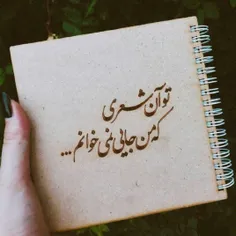 تو آن شعری
که من جایی نمی خوانم ...